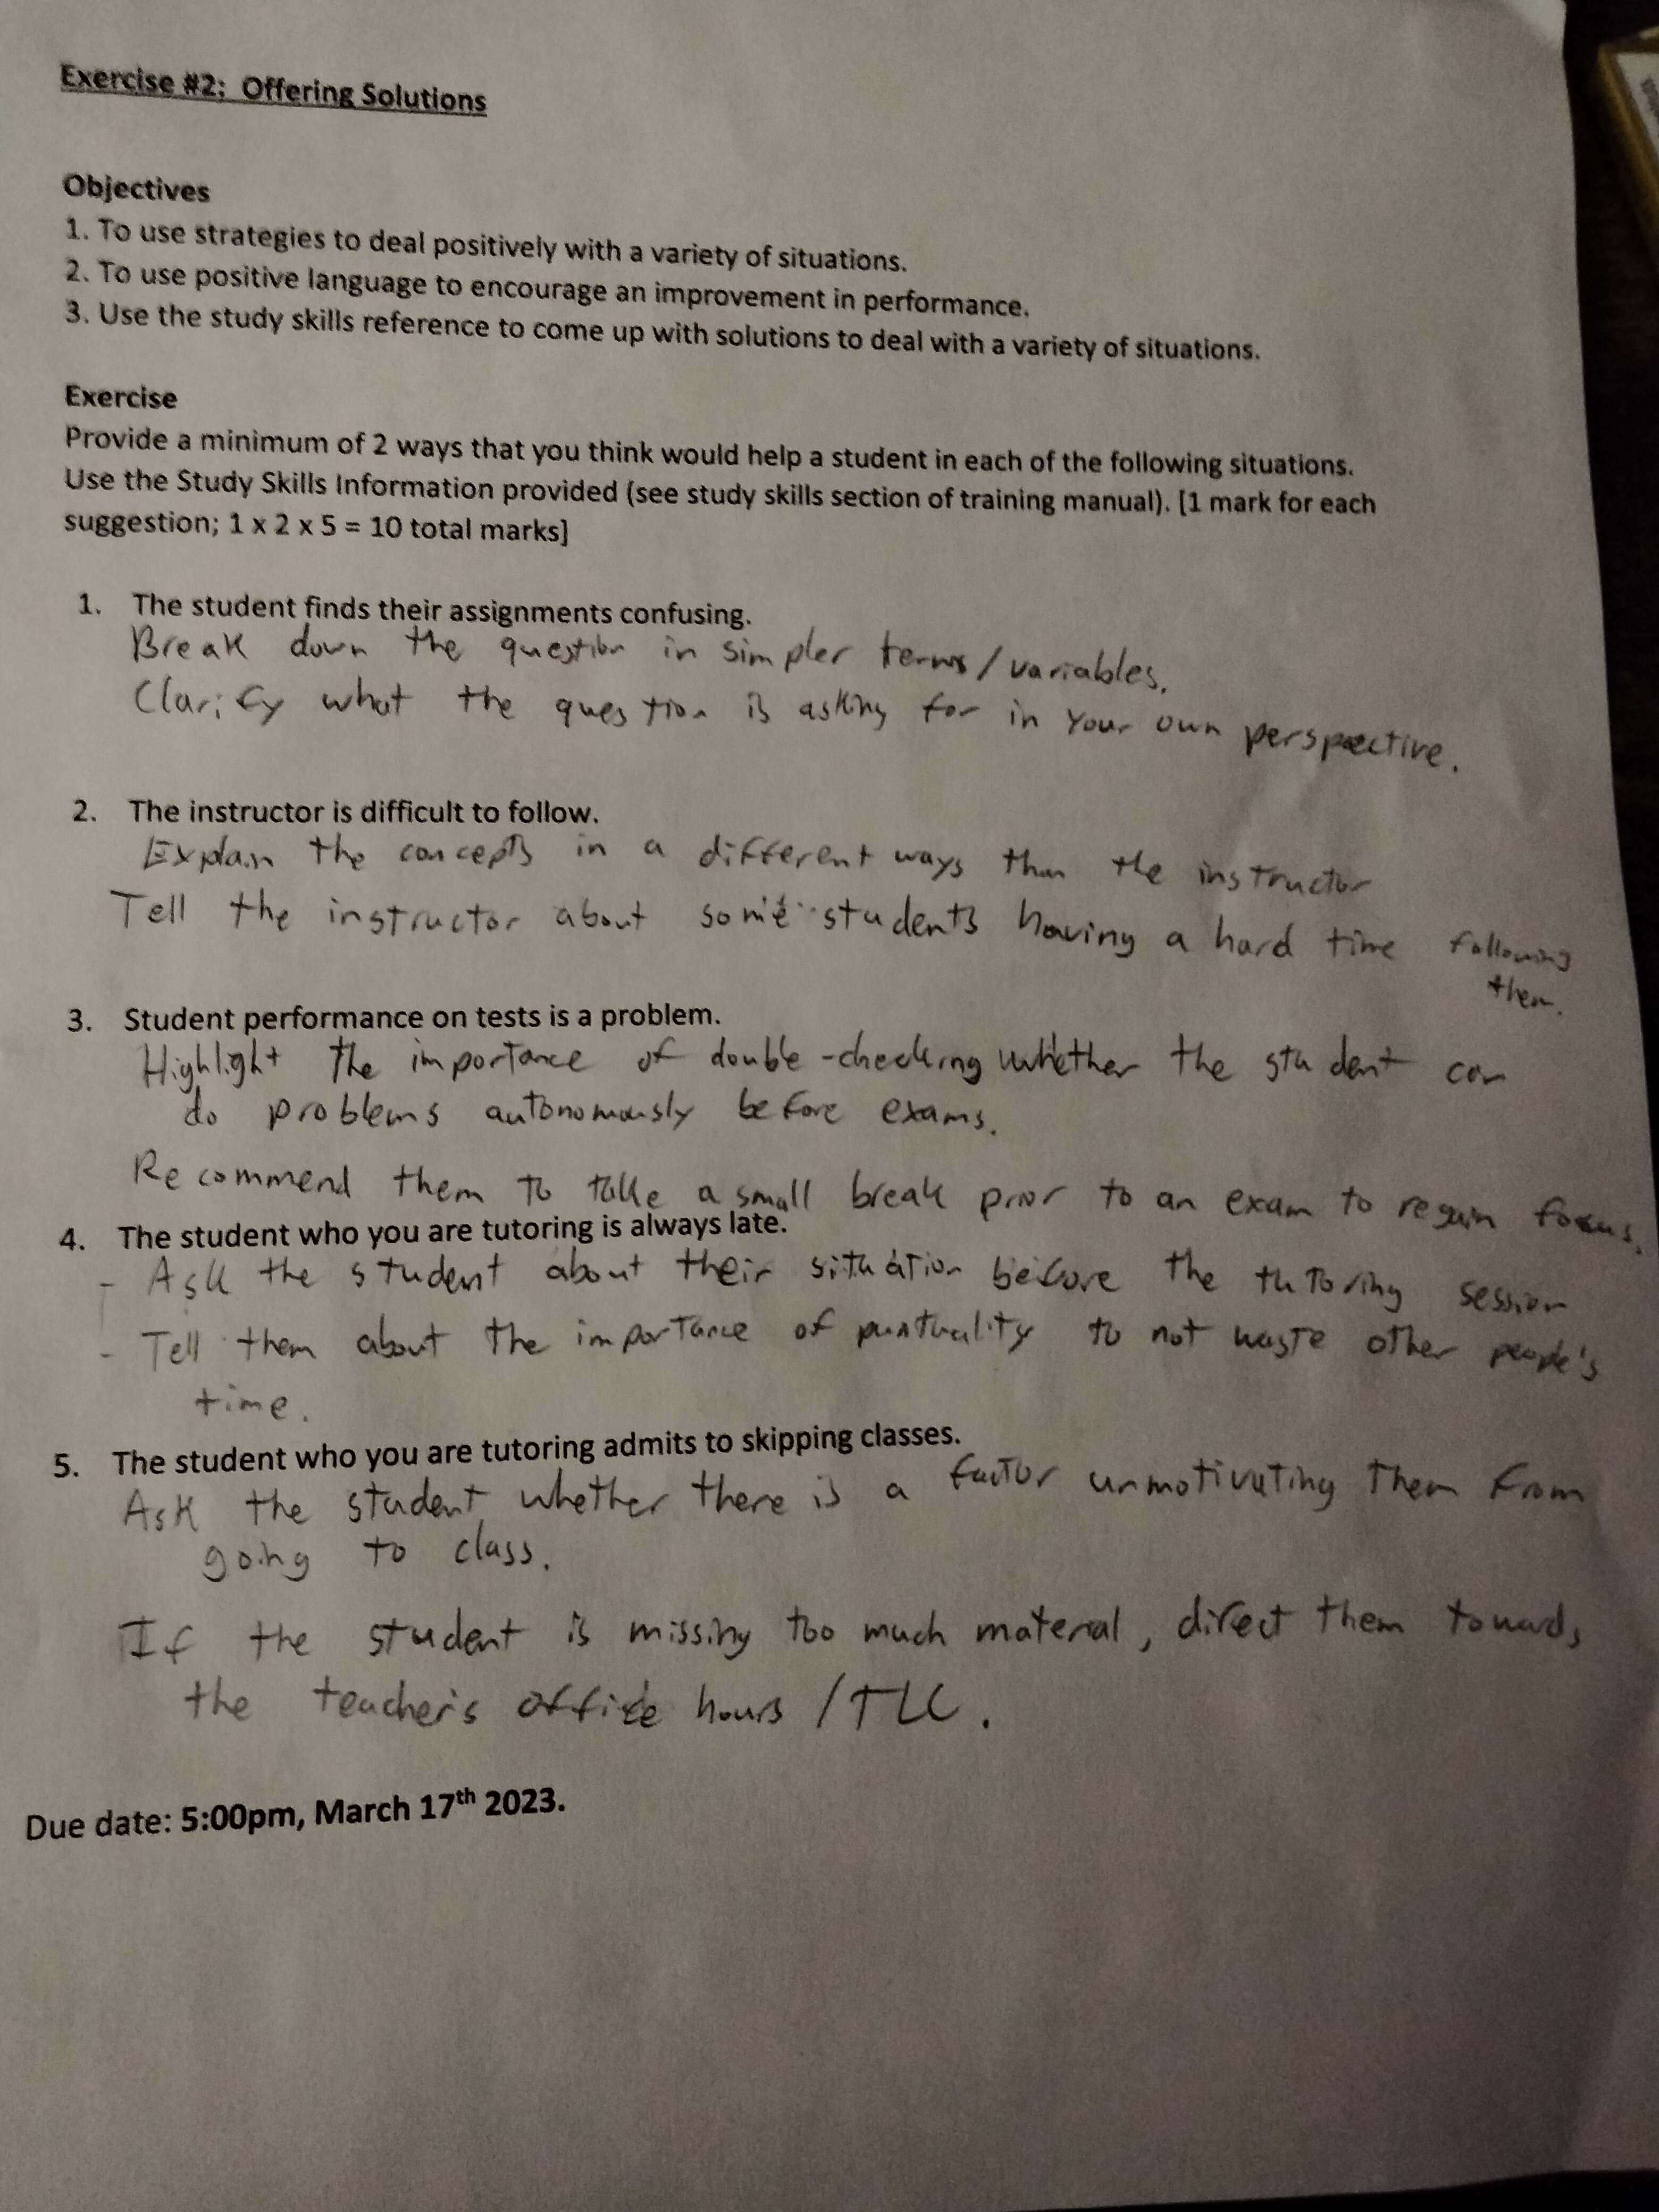 Exercise #2: Offering Solutions
Objectives
1. To use strategies to deal positively with a variety of situations.
2. To use positive language to encourage an improvement in performance.
3. Use the study skills reference to come up with solutions to deal with a variety of situations.
Exercise
Provide a minimum of 2 ways that you think would help a student in each of the following situations.
Use the Study Skills Information provided (see study skills section of training manual). [1 mark for each
suggestion; 1 x 2 x 5 = 10 total marks]
1. The student finds their assignments confusing.
Break down the question in simpler terms/variables.
Clarify what the question is asking for in your own perspective.
2. The instructor is difficult to follow.
Explain the concepts in a different ways than the instructor
Tell the instructor about some students having a hard time following
them.
3. Student performance on tests is a problem.
Highlight the importance of double-checking whether the student can
do problems autonomously before exams.
Recommend them to take a small break prior to an exam to regain focus.
4. The student who you are tutoring is always late.
- Ask the student about their situation before the tutoring session
- Tell them about the importance of punctuality to not waste other people's
time.
5. The student who you are tutoring admits to skipping classes.
Ask the student whether there is a factor unmotivating them from
going to class.
If the student is missing too much material, direct them towards
the teacher's office hours /TLC.
Due date: 5:00pm, March 17th 2023.